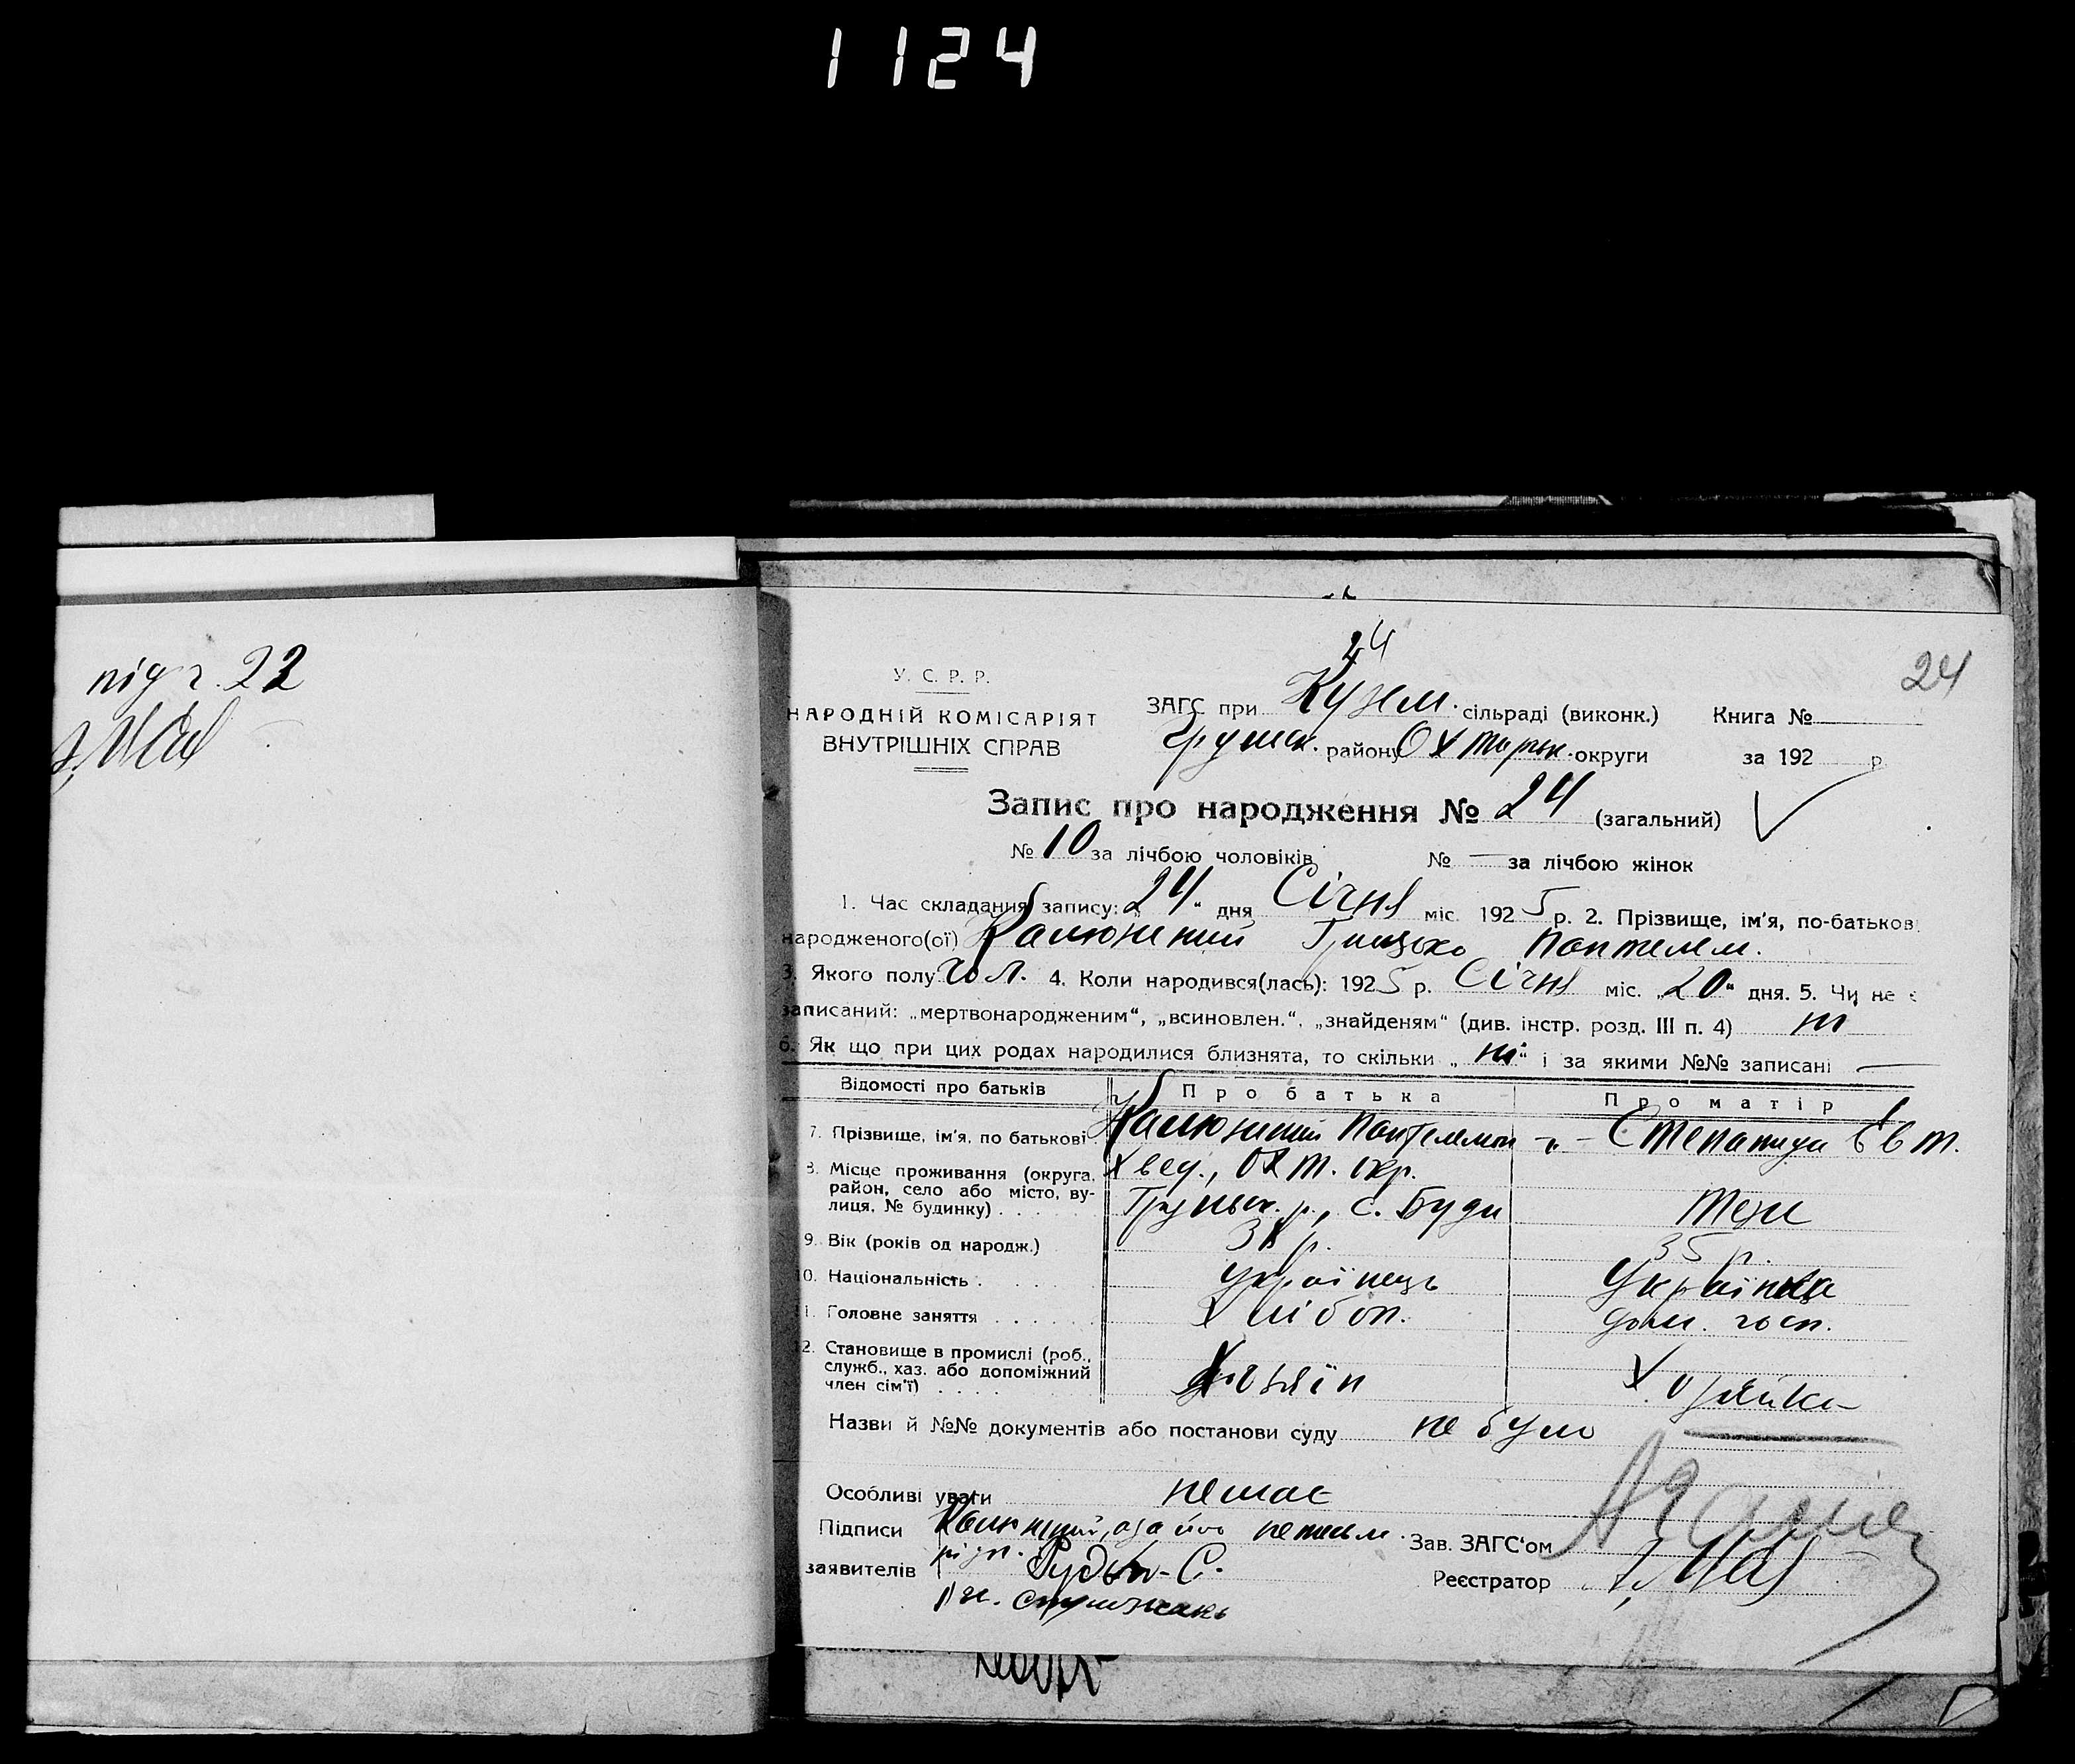 1124
24
24
У. С. Р. Р.
НАРОДНІЙ КОМІСАРІЯТ
ВНУТРІШНІХ СПРАВ
ЗАГС при Кузем. сільраді (виконк.)
району Охтирьк. округи
Книга №
за 192 р.
Запис про народження № 24 (загальний)
№ 10 за лічбою чоловіків № — за лічбою жінок
1. Час складання запису: „24“ дня Січня міс. 1925 р. 2. Прізвище, ім'я, по-батькові
народженого(ої) Калюжний Грицько Пантелем.
3. Якого полу чол. 4. Коли народився(лась): 1925 р. Січня міс. „20“ дня. 5. Чи не є
записаний: „мертвонародженим“, „всиновлен.“, „знайденям“ (див. інстр. розд. III п. 4) ні
6. Як що при цих родах народилися близнята, то скільки „ні“ і за якими №№ записані —
Відомості про батьків
Про батька
Про матір
7. Прізвище, ім'я, по батькові
Калюжний Пантелемон
Хвед.
-„- Степанида Євт.
8. Місце проживання (округа, район, село або місто, вулиця, № будинку)
Охт. окр.
р., с. Буди
Теж
9. Вік (років од народж.)
р.
35 р.
10. Національність
Українець
Українка
11. Головне заняття
Хлібоп.
дом. госп.
12. Становище в промислі (роб., служб., хаз. або допоміжний член сім'ї)
Хозяїн
Хозяйка
Назви й №№ документів або постанови суду не було
Особливі уваги немає
Підписи
заявителів
Калюжний, а за його неписьм.
Рудь С.
Зав. ЗАГС'ом
Реєстратор
22